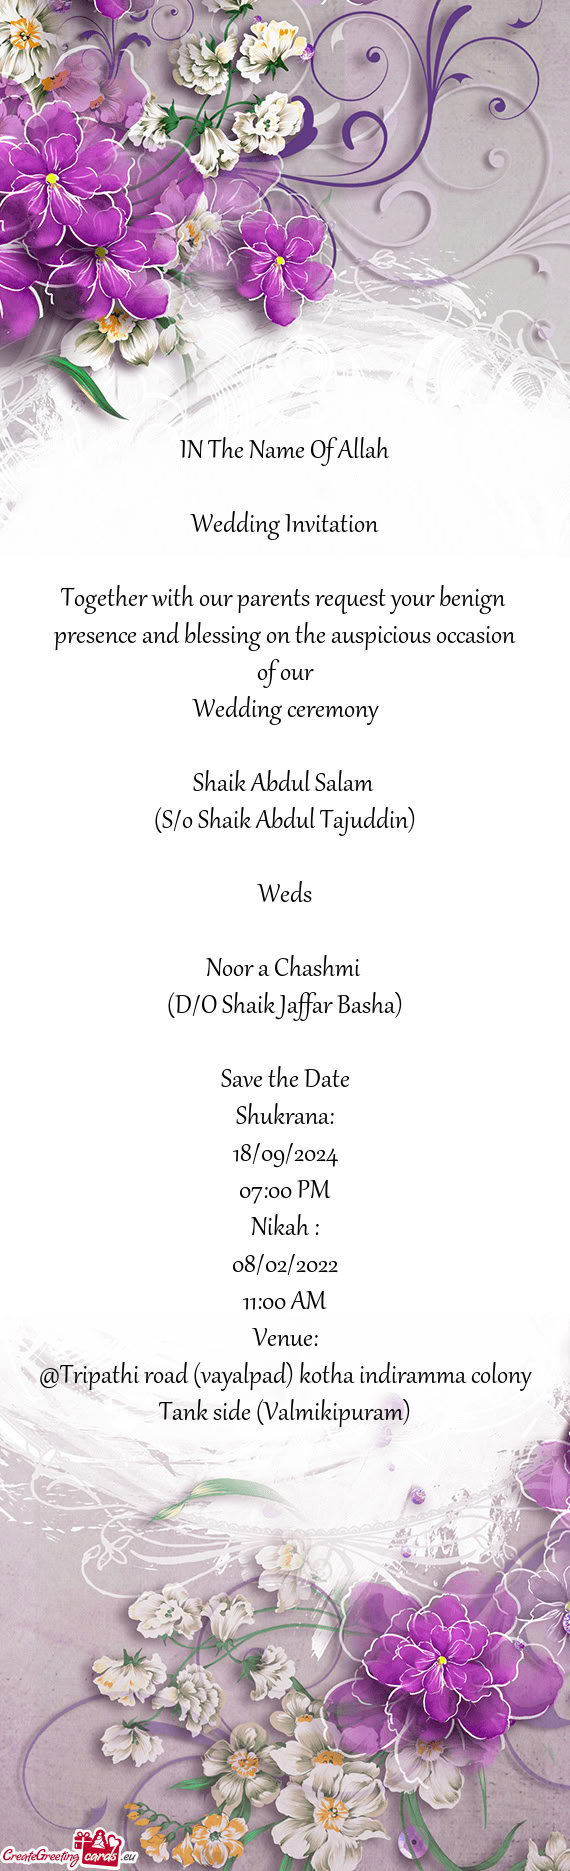 IN The Name Of Allah
Wedding Invitation
Together with our parents request your benign
presence and blessing on the auspicious occasion
of our
Wedding ceremony
Shaik Abdul Salam
(S/o Shaik Abdul Tajuddin)
Weds
Noor a Chashmi
(D/O Shaik Jaffar Basha)
Save the Date
Shukrana:
18/09/2024
07:00 PM
Nikah :
08/02/2022
11:00 AM
Venue:
@Tripathi road (vayalpad) kotha indiramma colony
Tank side (Valmikipuram)
CreateGreeting cards .eu